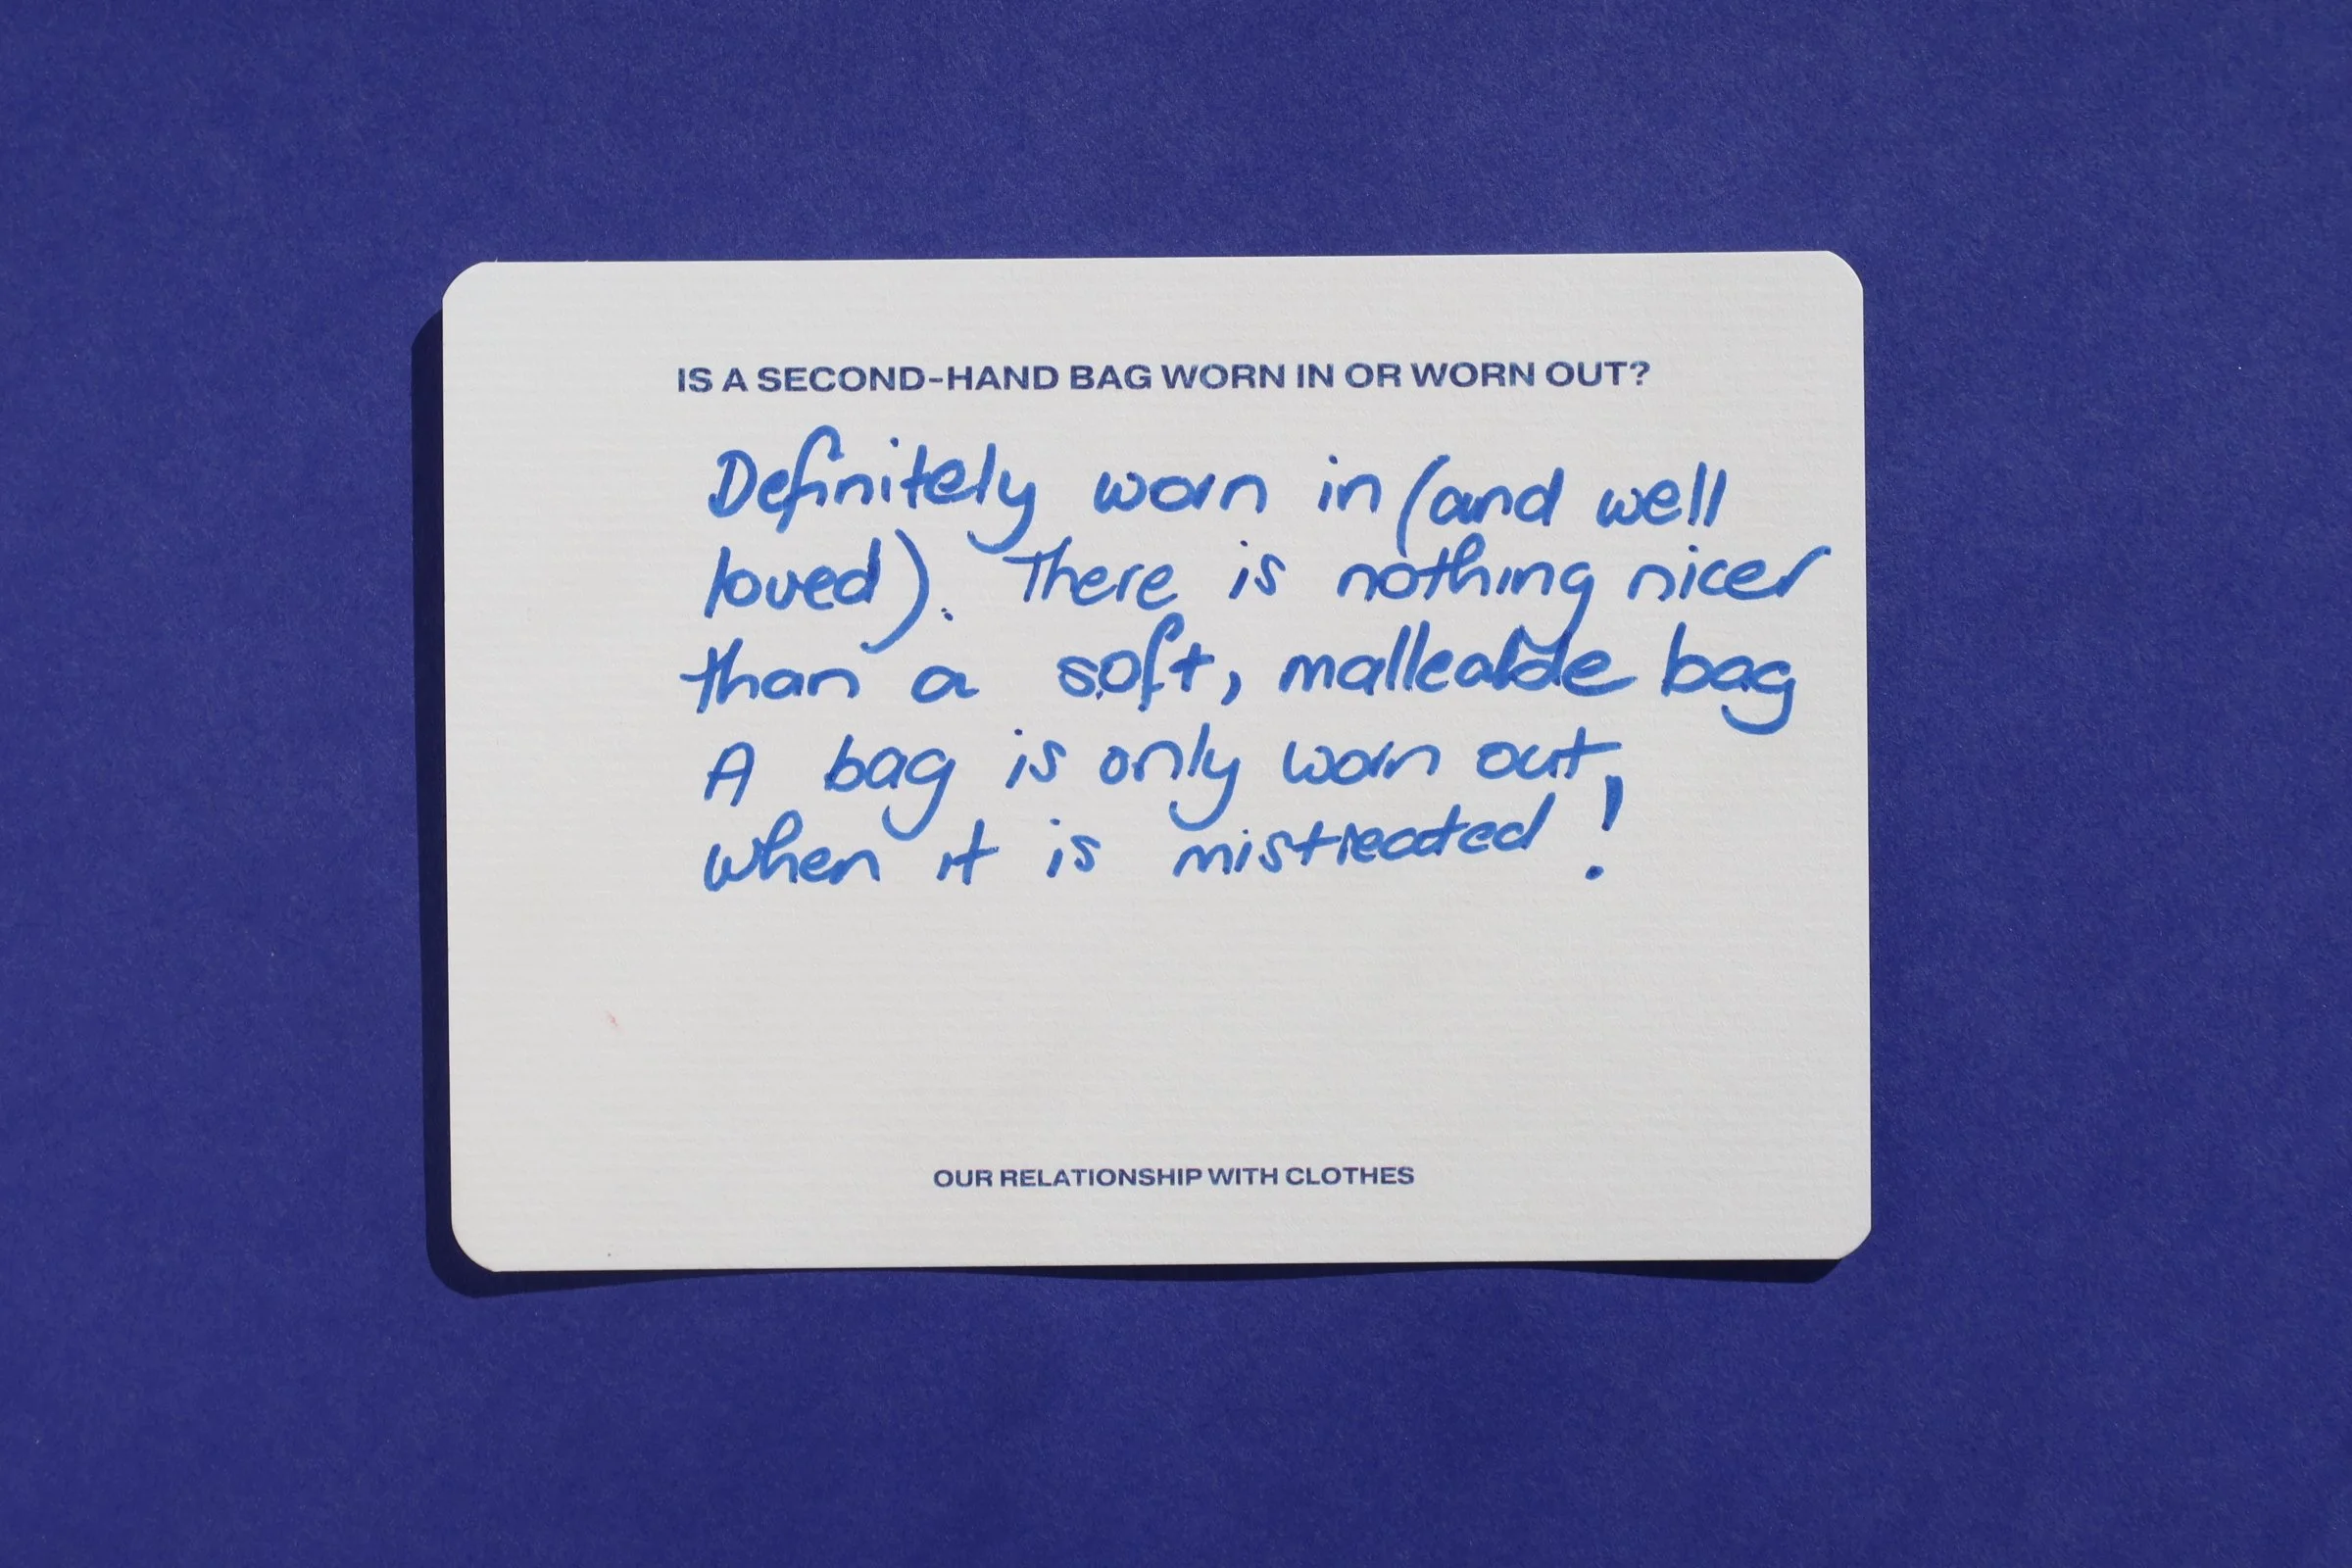 IS A SECOND-HAND BAG WORN IN OR WORN OUT?
Definitely worn in (and well
loved). There is nothing nicer
than a soft, malleable bag
A bag is only worn out,
when it is mistreated!
OUR RELATIONSHIP WITH CLOTHES